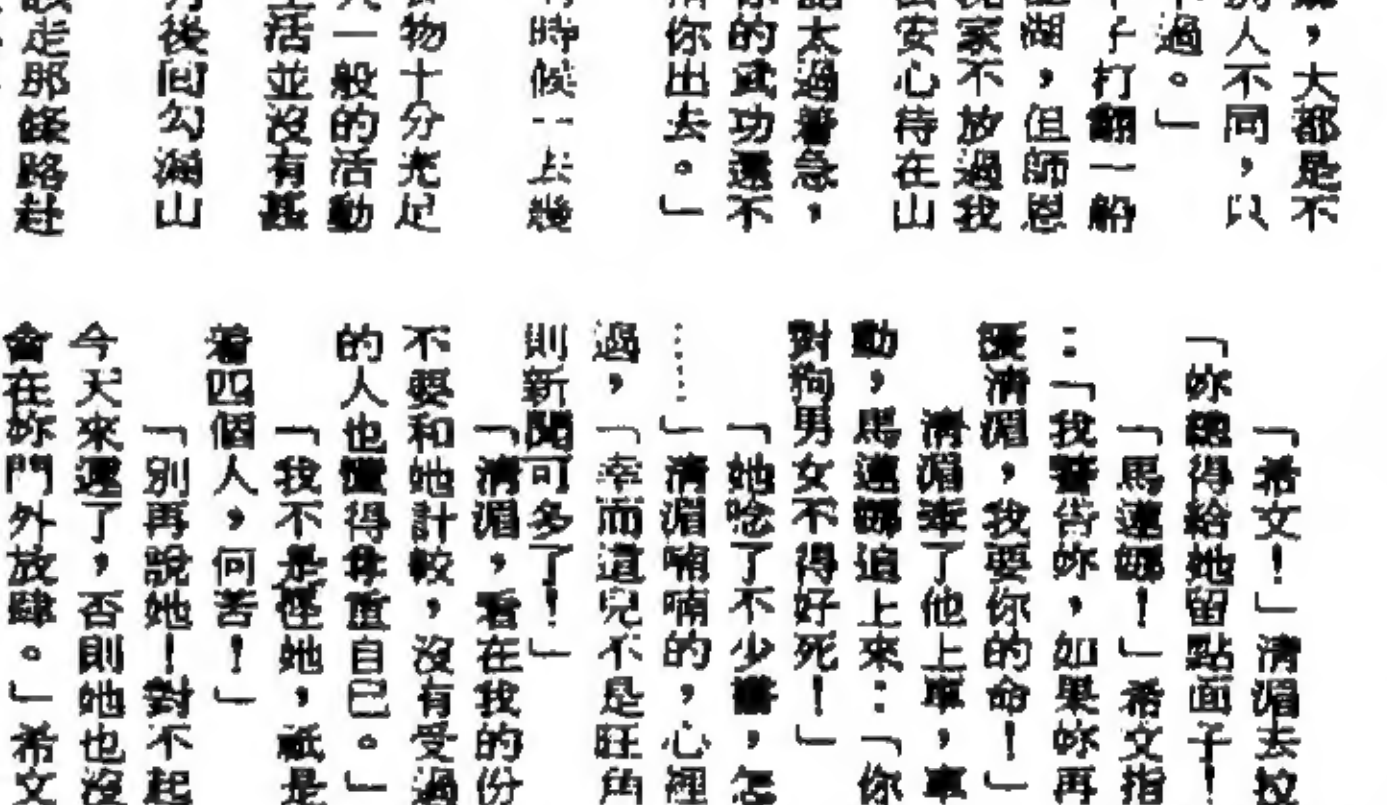 ，大都是不
人不同，只
過。」
子打翻一船
湖，但師恩
家不放過我
安心待在山
太過着急，
的武功還不
你出去。」
時候一上幾
物十分充足
一般的活動
活並沒有甚
後回勾漏山
走那條路赴
「希文！」清湄去拉
「妳總得給她留點面子！
「馬蓮娜！」希文指
：「我警告妳，如果妳再
清湄，我要你的命！」
清湄牽了他上車，車
動，馬蓮娜追上來：「你
對狗男女不得好死！」
「她唸了不少書，怎
……」清湄喃喃的，心裡
過，「幸而這兒不是旺角
則新聞可多了！」
「清湄，看在我的份
不要和她計較，沒有受過
的人也懂得尊重自己。」
「我不是怪她，祇是
着四個人，何苦！」
「別再說她！對不起
今天來遲了，否則她也沒
會在妳門外放肆。」希文